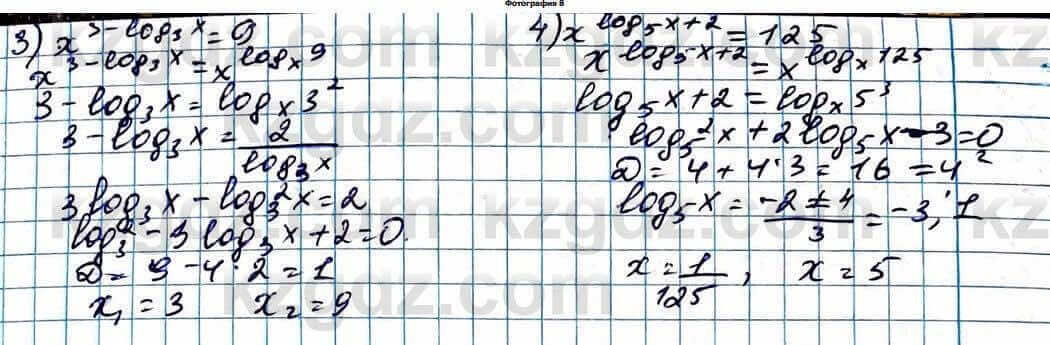 Фотография 8
3) x^{3-log_3 x} = 9
x^{3-log_3 x} = x^{log_x 9}
3 - log_3 x = log_x 3^2
3 - log_3 x = 2/log_3 x
3 log_3 x - log_3^2 x = 2
log_3^2 - 3 log_3 x + 2 = 0.
D = 9 - 4 · 2 = 1
x_1 = 3 x_2 = 9
4) x^{log_5 x + 2} = 125
x^{log_5 x + 2} = x^{log_x 125}
log_5 x + 2 = log_x 5^3
log_5^2 x + 2 log_5 x - 3 = 0
D = 4 + 4 · 3 = 16 = 4^2
log_5 x = (-2 ± 4)/3 = -3; 1
x = 1/125, x = 5
kzgdz.com